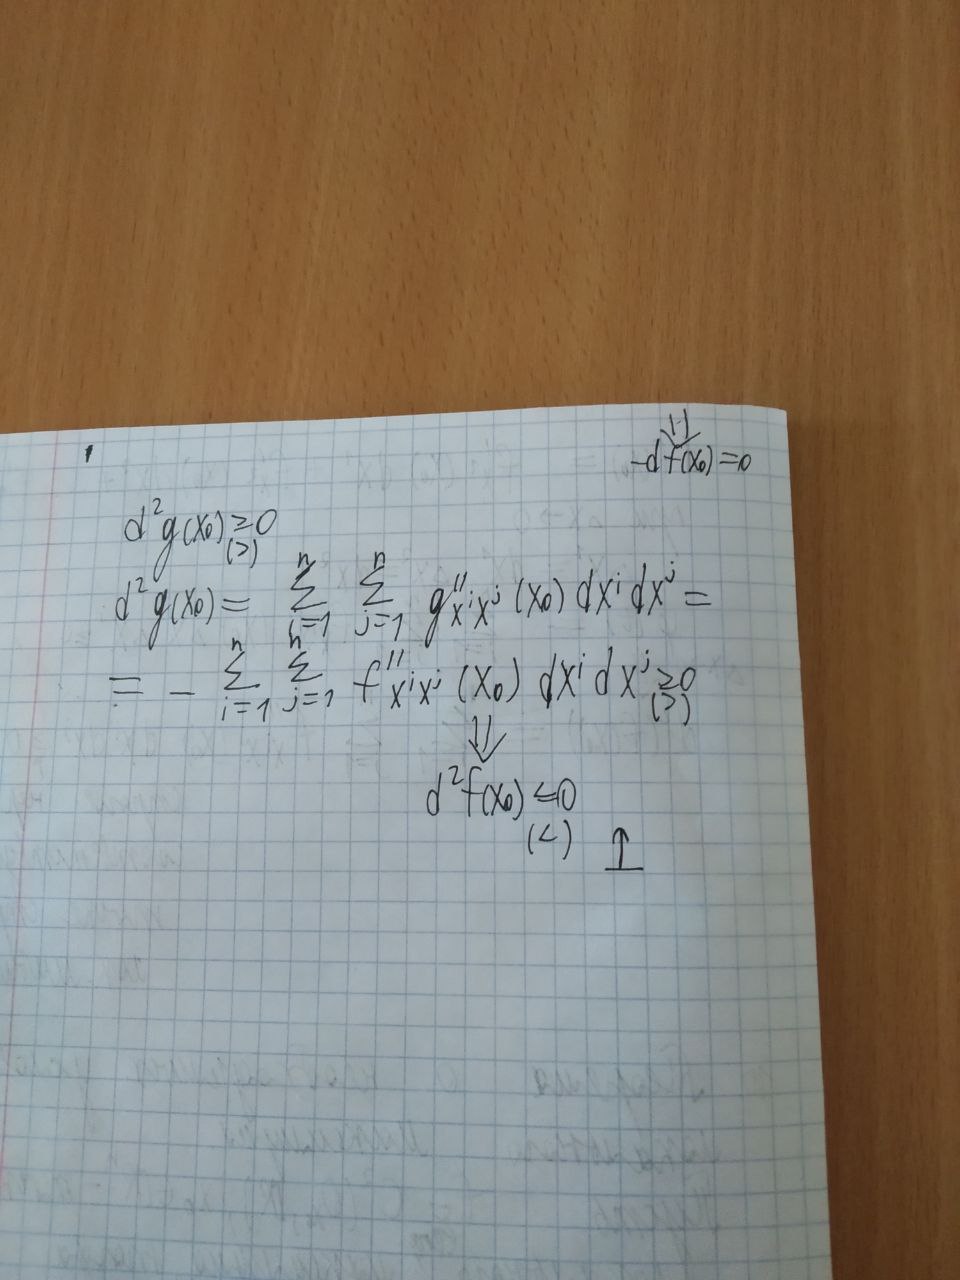 -df(x₀)=0
d²g(x₀)≥0
(>)
d²g(x₀)= ∑ⁿᵢ₌₁ ∑ⁿⱼ₌₁ g''xⁱxʲ (x₀) dxⁱ dxʲ =
= - ∑ⁿᵢ₌₁ ∑ⁿⱼ₌₁ f''xⁱxʲ (x₀) dxⁱ dxʲ ≥0
(>)
⇓
d²f(x₀) ≤0
(<)